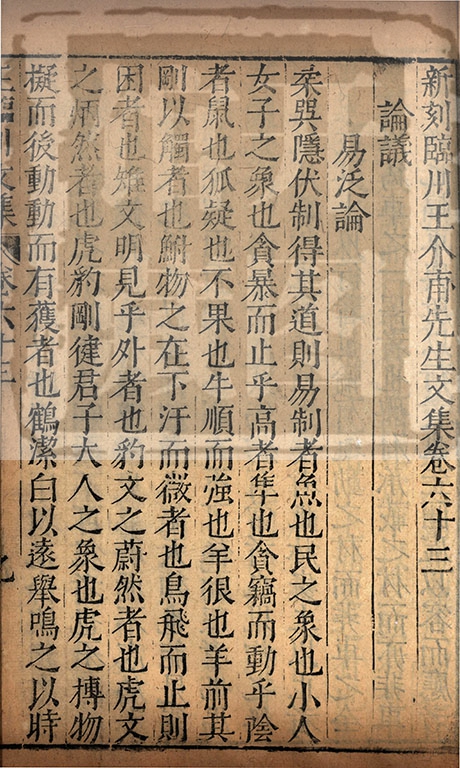 新刻臨川王介甫先生文集卷六十三
論議
易泛論
柔巽隱伏制得其道則易制者魚也民之象也小人
女子之象也貪暴而止乎高者隼也貪竊而動乎陰
者鼠也狐疑也不果也牛順而強也羊很也羊前其
剛以觸者也鮒物之在下汙而微者也鳥飛而止則
困者也雉文明見乎外者也豹文之蔚然者也虎文
之炳然者也虎豹剛健君子大人之象也虎之摶物
擬而後動動而有獲者也鶴潔白以遠舉鳴之以時
王臨川文集 卷六十三